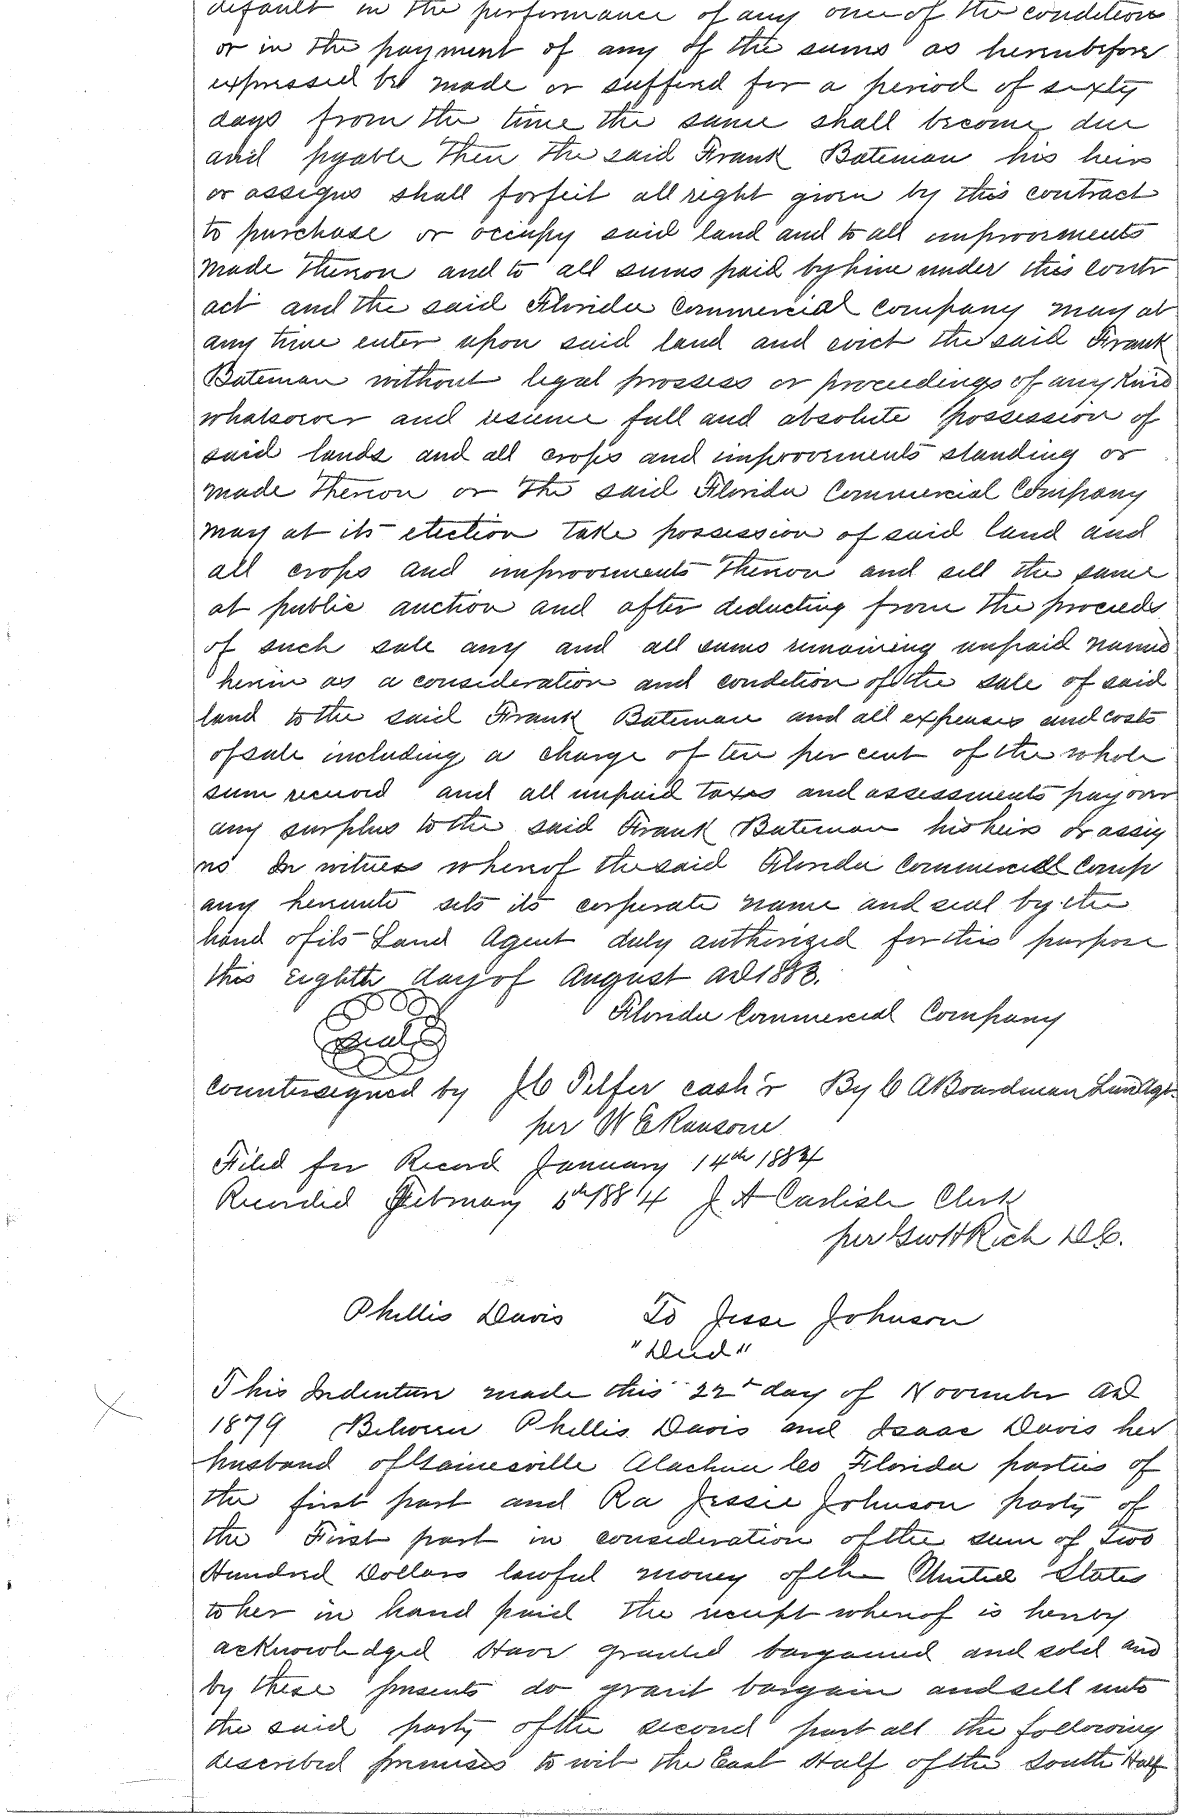 default in the performance of any one of the conditions
or in the payment of any of the sums as hereinbefore
expressed be made or suffered for a period of sixty
days from the time the same shall become due
and pyable then the said Frank Bateman his heirs
or assigns shall forfeit all right given by this contract
to purchase or occupy said land and to all improvements
made thereon and to all sums paid by him under this contr
act and the said Florida Commercial Company may at
any time enter upon said land and evict the said Frank
Bateman without legal prossess or proceedings of any kind
whatsoever and resume full and absolute possession of
said lands and all crops and improvements standing or
made thereon or the said Florida Commercial Company
may at its etection take possession of said land and
all crops and improvements thereon and sell the same
at public auction and after deducting from the proceeds
of such sale any and all sums remaining unpaid named
herein as a consideration and condition of the sale of said
land to the said Frank Bateman and all expenses and costs
of sale including a charge of ten per cent of the whole
sum received and all unpaid taxes and assessments pay over
any surplus to the said Frank Bateman his heirs or assig
ns In witness whereof the said Florida Commercial Comp
any hereunto sets its corporate name and seal by the
hand of its Land Agent duly authorized for this purpose
this eighth day of August AD 1883.
Florida Commercial Company
seal
Countersigned by J C Telfer cash'r By C A Boardman Land Agt.
per W E Ransone
Filed for Record January 14th 1884
Recorded February 5th 1884 J A Carlisle Clerk
per Geo H Rich D.C.
Phillis Davis To Jesse Johnson
"Deed"
This Indenture made this 22d day of November AD
1879 Between Phillis Davis and Isaac Davis her
husband of Gainesville Alachua Co Florida parties of
the first part and Ra Jessie Johnson party of
the First part in consideration of the sum of Two
Hundred Dollars lawful money of the United States
to her in hand paid the receipt whereof is hereby
acknowledged Have granted bargained and sold and
by these presents do grant bargain and sell unto
the said party of the second part all the following
described premises to wit the East Half of the South Half